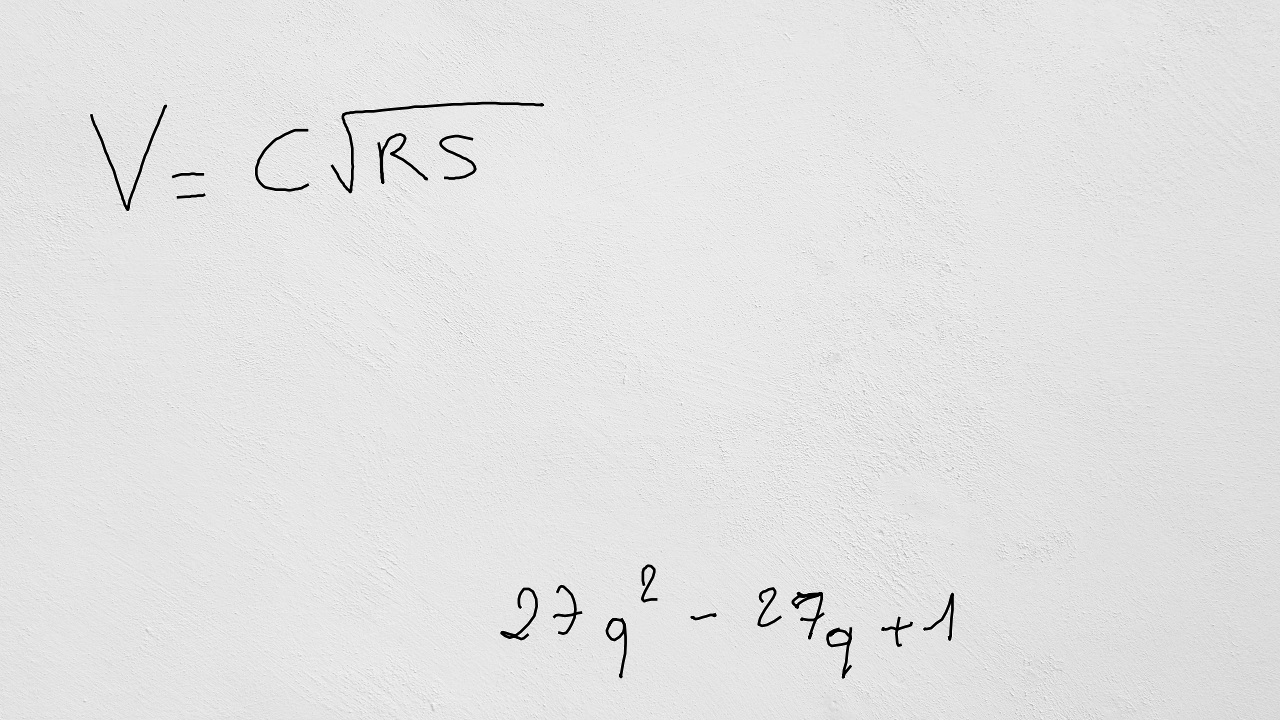 V = C√RS
27q² - 27q + 1